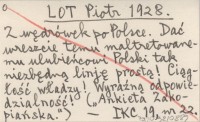 LOT Piotr 1928.
Z wędrówek po Polsce. Dać
wreszcie temu maltretowane-
mu ulubieńcowi Polski tak
niezbędną linję prostą! Ciąg-
łość władzy! Wyraźna odpowie-
dzialność! ("Ankieta Zako-
piańska.") — IKC, 19, s. 22.